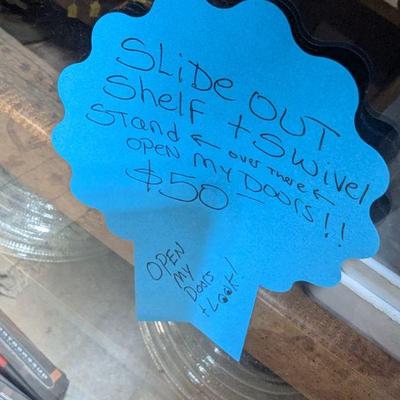 SLiDe OUT
Shelf + Swivel
Stand ← over There ←
OPEN MY DOORS!!
$50—
OPEN
MY
Doors
+ LOOK!